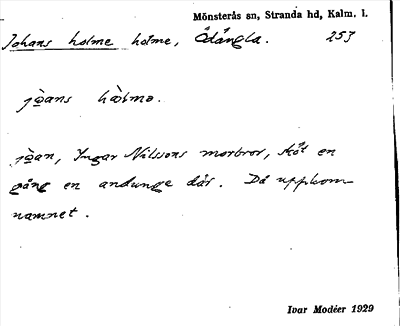 Mönsterås sn, Stranda hd, Kalm. l.
Johans holme holme, Ödängla. 253
jo̤ans hòlmə.
jo̤an, Ingar Nilssons morbror, sköt en
gång en andunge där. Då uppkom
namnet.
Ivar Modéer 1929